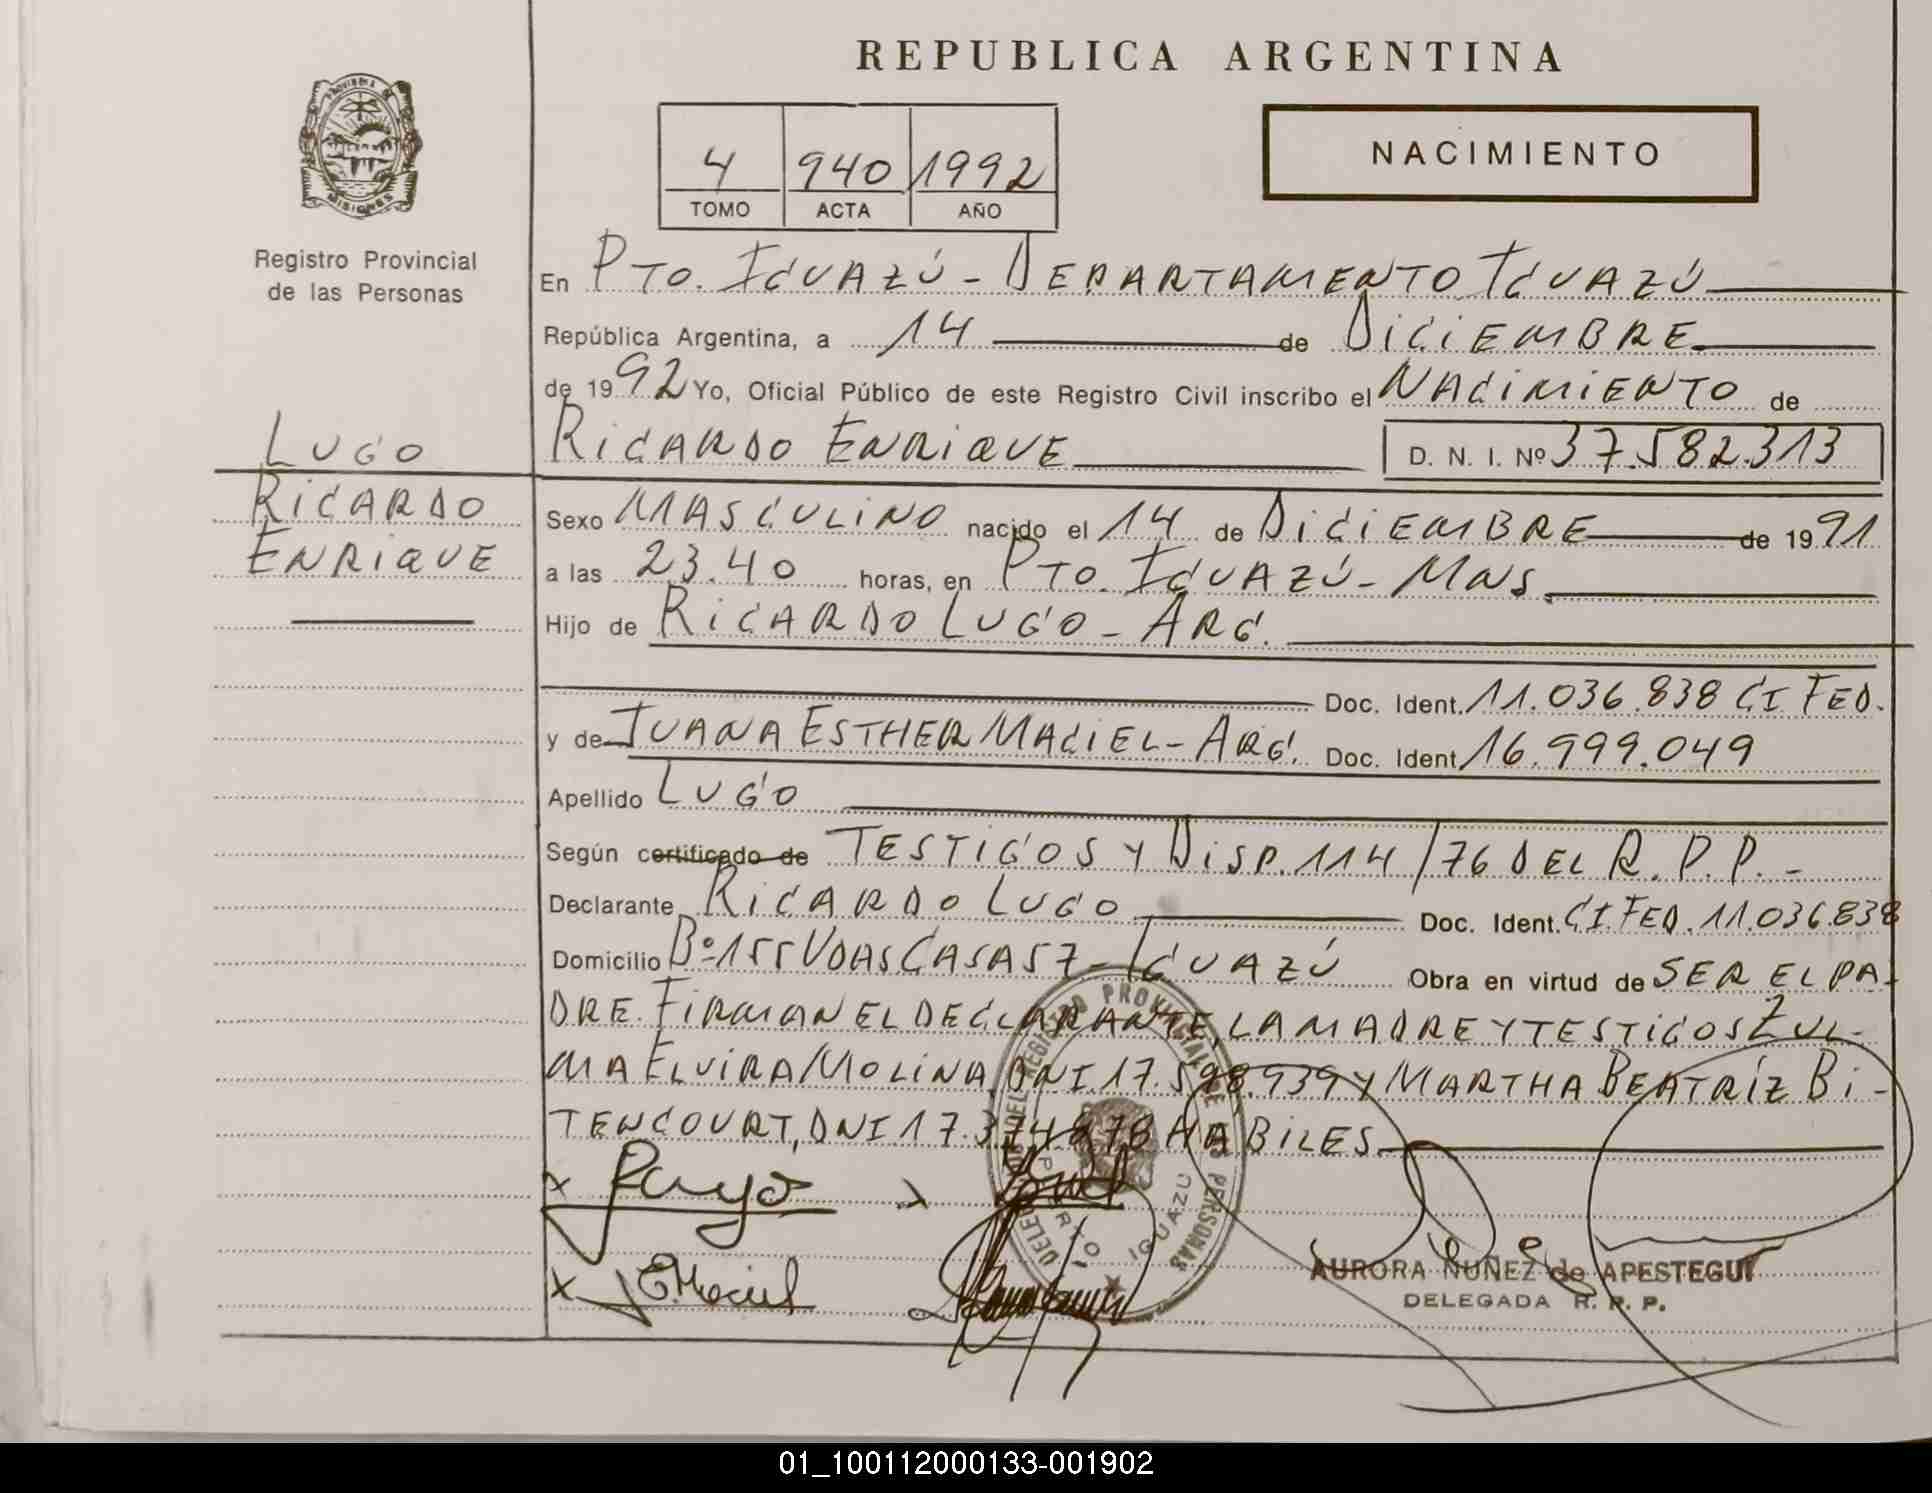 REPUBLICA ARGENTINA
PROVINCIA DE
MISIONES
Registro Provincial
de las Personas
4 940 1992
TOMO ACTA AÑO
NACIMIENTO
En PTO. IGUAZÚ - DEPARTAMENTO IGUAZÚ
República Argentina, a 14 de DICIEMBRE
de 1992 Yo, Oficial Público de este Registro Civil inscribo el NACIMIENTO de
LUGO
RICARDO
ENRIQUE
RICARDO ENRIQUE D. N. I. Nº 37.582.313
Sexo MASCULINO nacido el 14 de DICIEMBRE de 1991
a las 23.40 horas, en PTO. IGUAZÚ - MNS.
Hijo de RICARDO LUGO - ARG.
Doc. Ident. 11.036.838 CI FED.
y de JUANA ESTHER MACIEL - ARG. Doc. Ident. 16.999.049
Apellido LUGO
Según certificado de TESTIGOS Y DISP. 114/76 DEL R. P. P. -
Declarante RICARDO LUGO Doc. Ident. CI. FED. 11.036.838
Domicilio Bº 155 VDAS CASA 57 - IGUAZÚ Obra en virtud de SER EL PA-
DRE. FIRMAN EL DECLARANTE, LA MADRE Y TESTIGOS ZUL-
MA ELVIRA MOLINA, DNI 17.598.939 Y MARTHA BEATRÍZ BI-
TENCOURT, DNI 17.374.878 HABILES
x x
x
DEL REGISTRO PROVINCIAL DE PERSONAS
PUERTO IGUAZU
AURORA NUÑEZ de APESTEGUI
DELEGADA R. P. P.
01_100112000133-001902